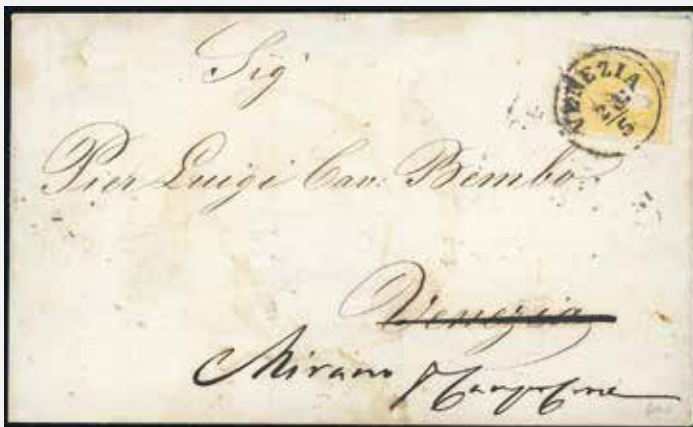 Sig
VENEZIA
Pier Luigi Cav: Bembo
Venezia
Mirano